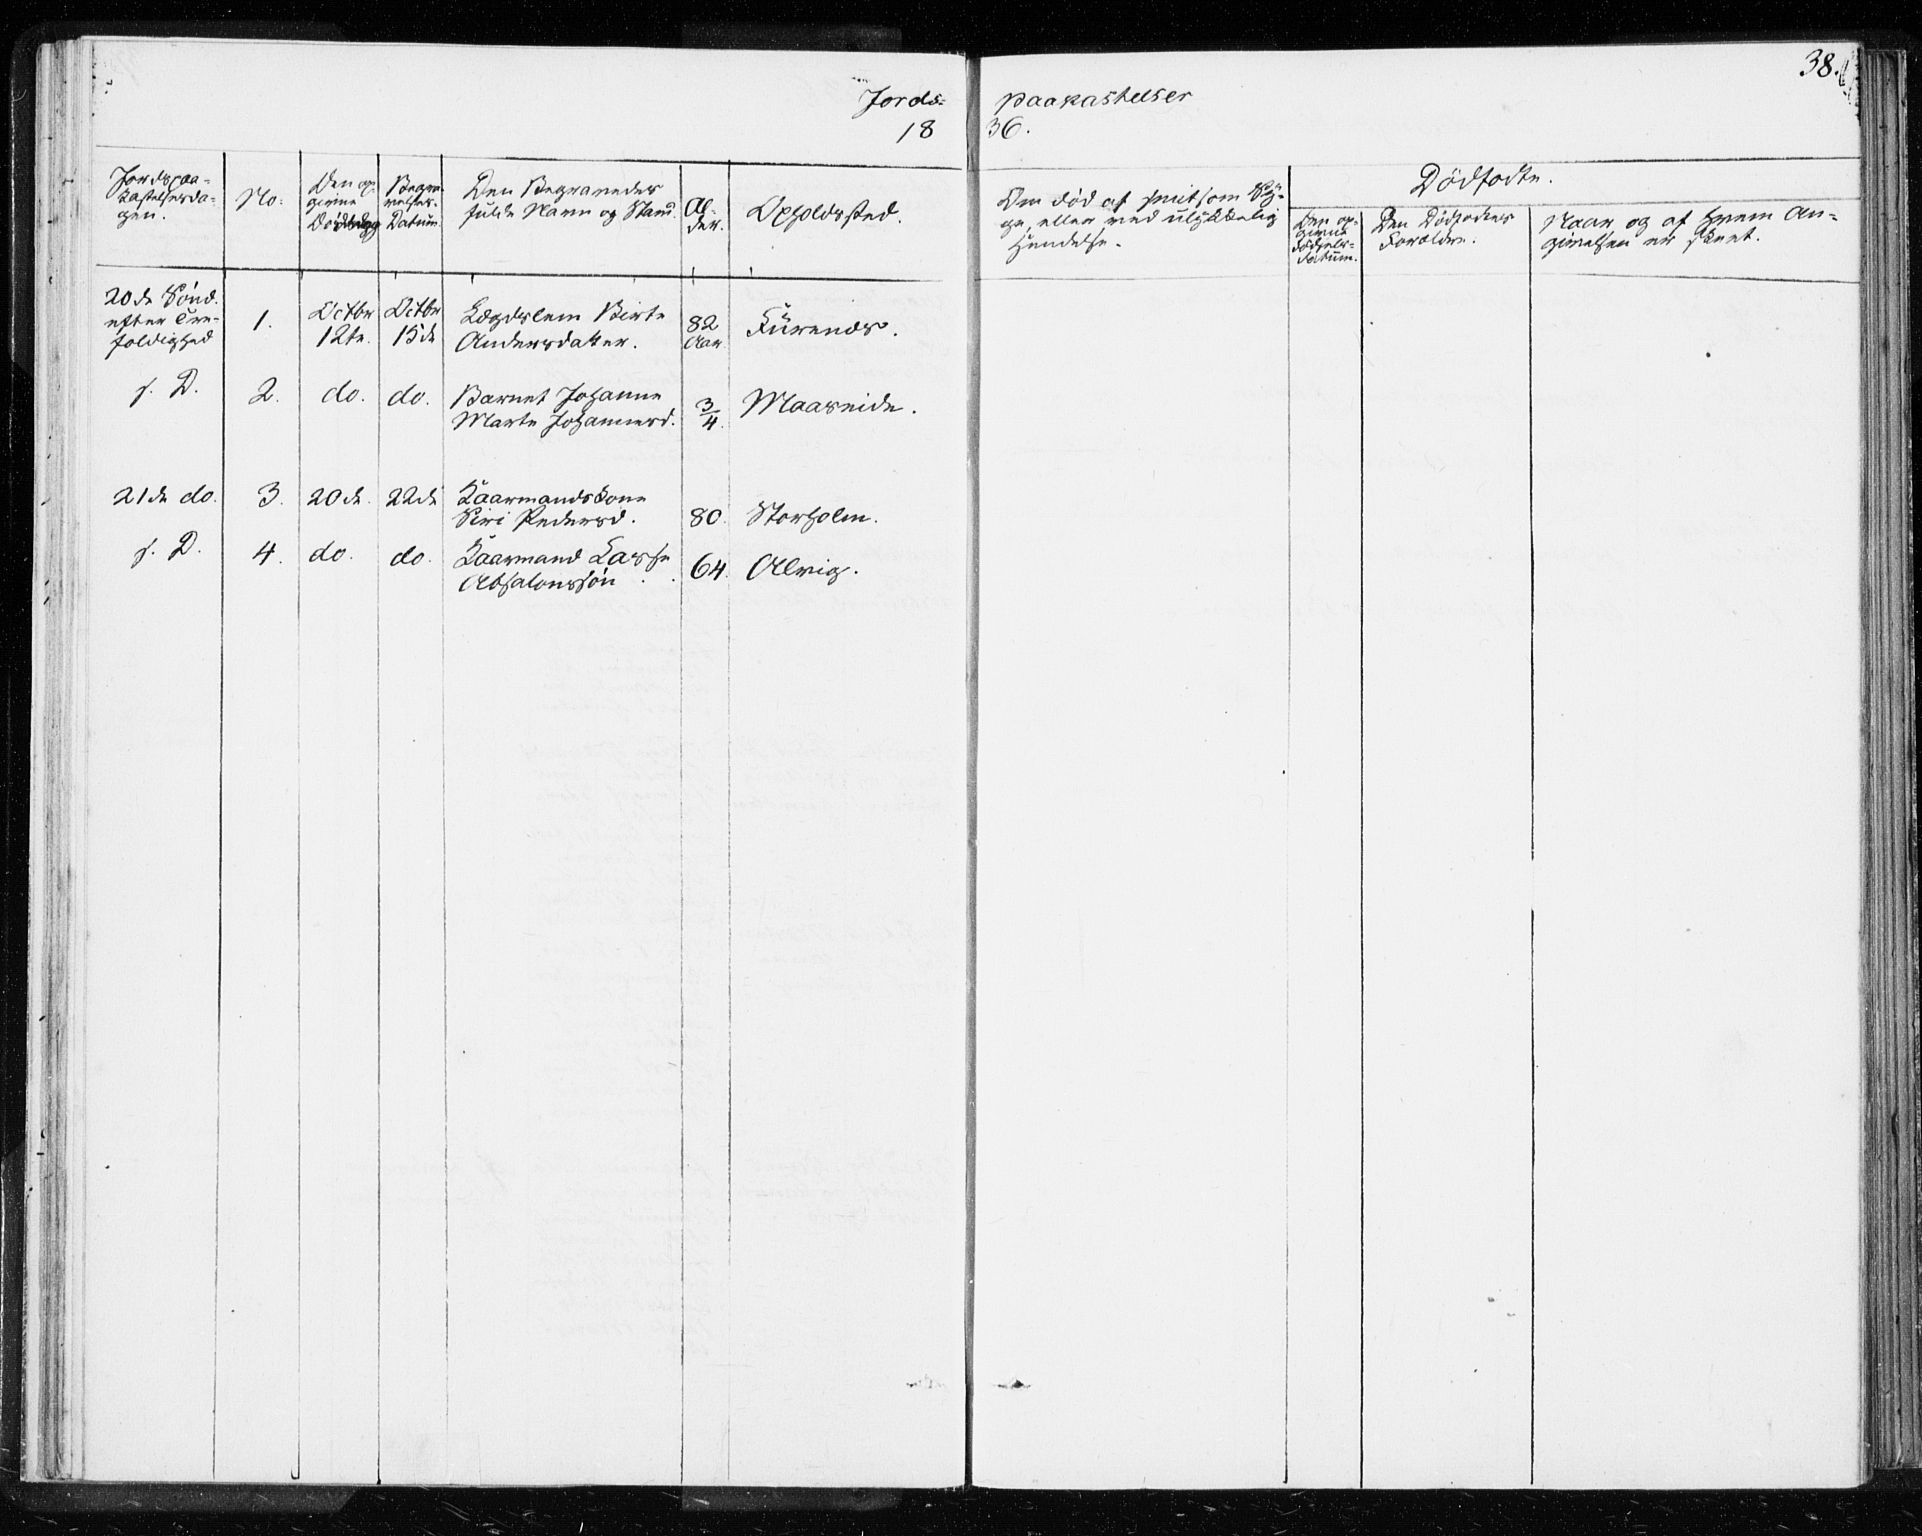 38.
Jords-
paakastelser
18
36.
Jordspaa-
kastelsesda-
gen.
No.
Den op-
givne
Dödsdag
Begra-
velses-
Datum.
Den Begravedes
fulde Navn og Stand.
Al-
der.
Opholdssted.
Om död af smitsom Sy-
ge, eller ved ulykkelig
Hendelse.
Dödfödte.
Den op-
givne
Födsels-
Datum.
Den Dödfödtes
Forældre.
Naar og af hvem An-
givelsen er skeet.
20de Sönd.
efter Tre-
foldighed
1.
Octbr
12te.
Octbr
15de
Lægdslem Birte
Andersdatter.
82
Aar.
Fürenes.
s. D.
2.
do.
do.
Barnet Johanne
Marte Johannesd.
3/4.
Maaseide.
21de do.
3.
20de.
22de
Kaarmandskone
Siri Pedersd.
80.
Storholm.
s. D.
4.
do.
do.
Kaarmand Lasse
Absalonssön
64.
Alvig.